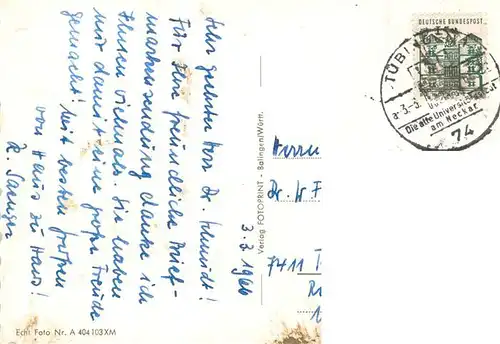 3.3.1966
Sehr geehrter Herr Dr. Schmidt!
Für Ihre freundliche Brief-
markensendung danke ich
Ihnen vielmals. Sie haben
mir damit eine große Freude
gemacht! Mit besten Grüßen
von Haus zu Haus!
R.
Echt Foto Nr. A 404103XM
Verlag FOTOPRINT - Balingen/Württ.
DEUTSCHE BUNDESPOST
TÜBINGEN
Die alte Universität
am Neckar
74
Herrn
Dr. W. F
7411 T